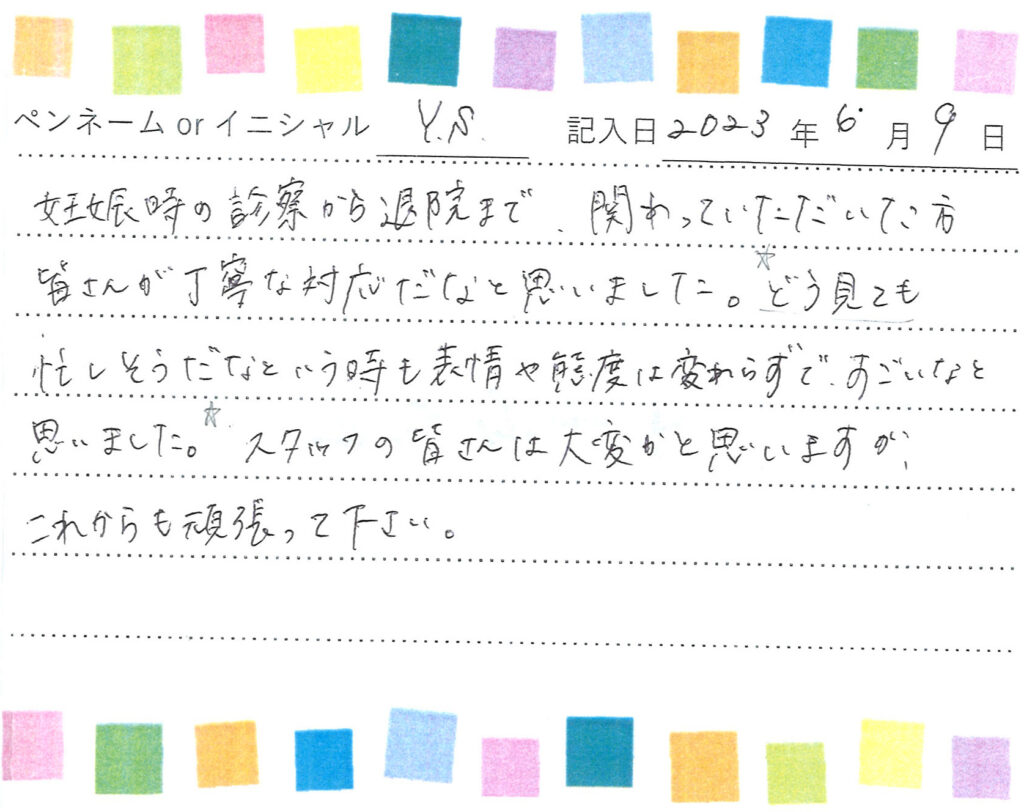 ペンネーム or イニシャル Y.S. 記入日 2023 年 6 月 9 日
妊娠時の診察から退院まで、関わっていただいた方
皆さんが丁寧な対応だなと思いました。☆どう見ても
忙しそうだなという時も表情や態度は変わらずで、すごいなと
思いました。☆ スタッフの皆さんは大変かと思いますが、
これからも頑張って下さい。